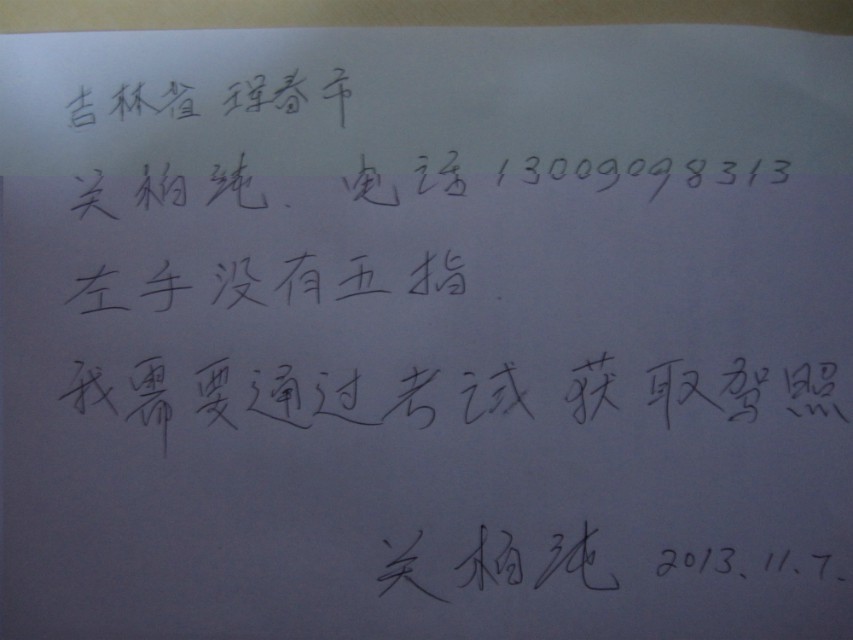 吉林省 珲春市
关柏纯. 电话 13009098313
左手没有五指.
我需要通过考试 获取驾照
关柏纯 2013.11.7.